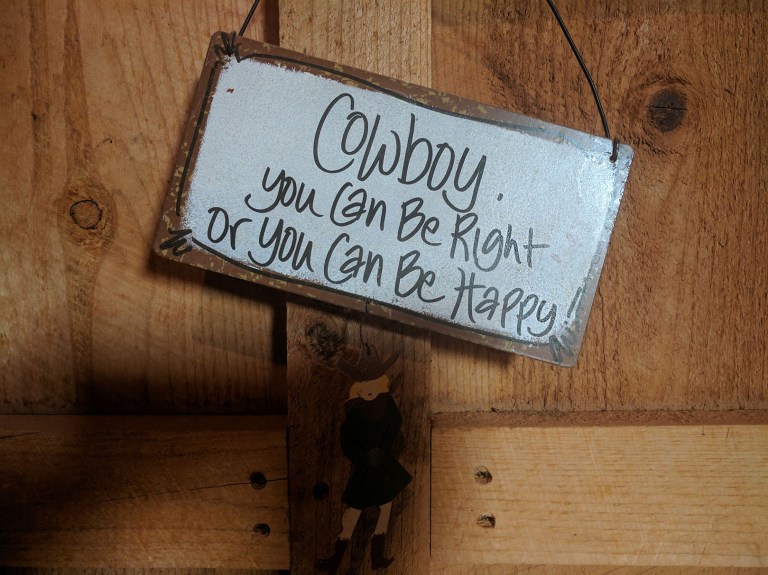 Cowboy.
you Can Be Right
or you Can Be Happy!